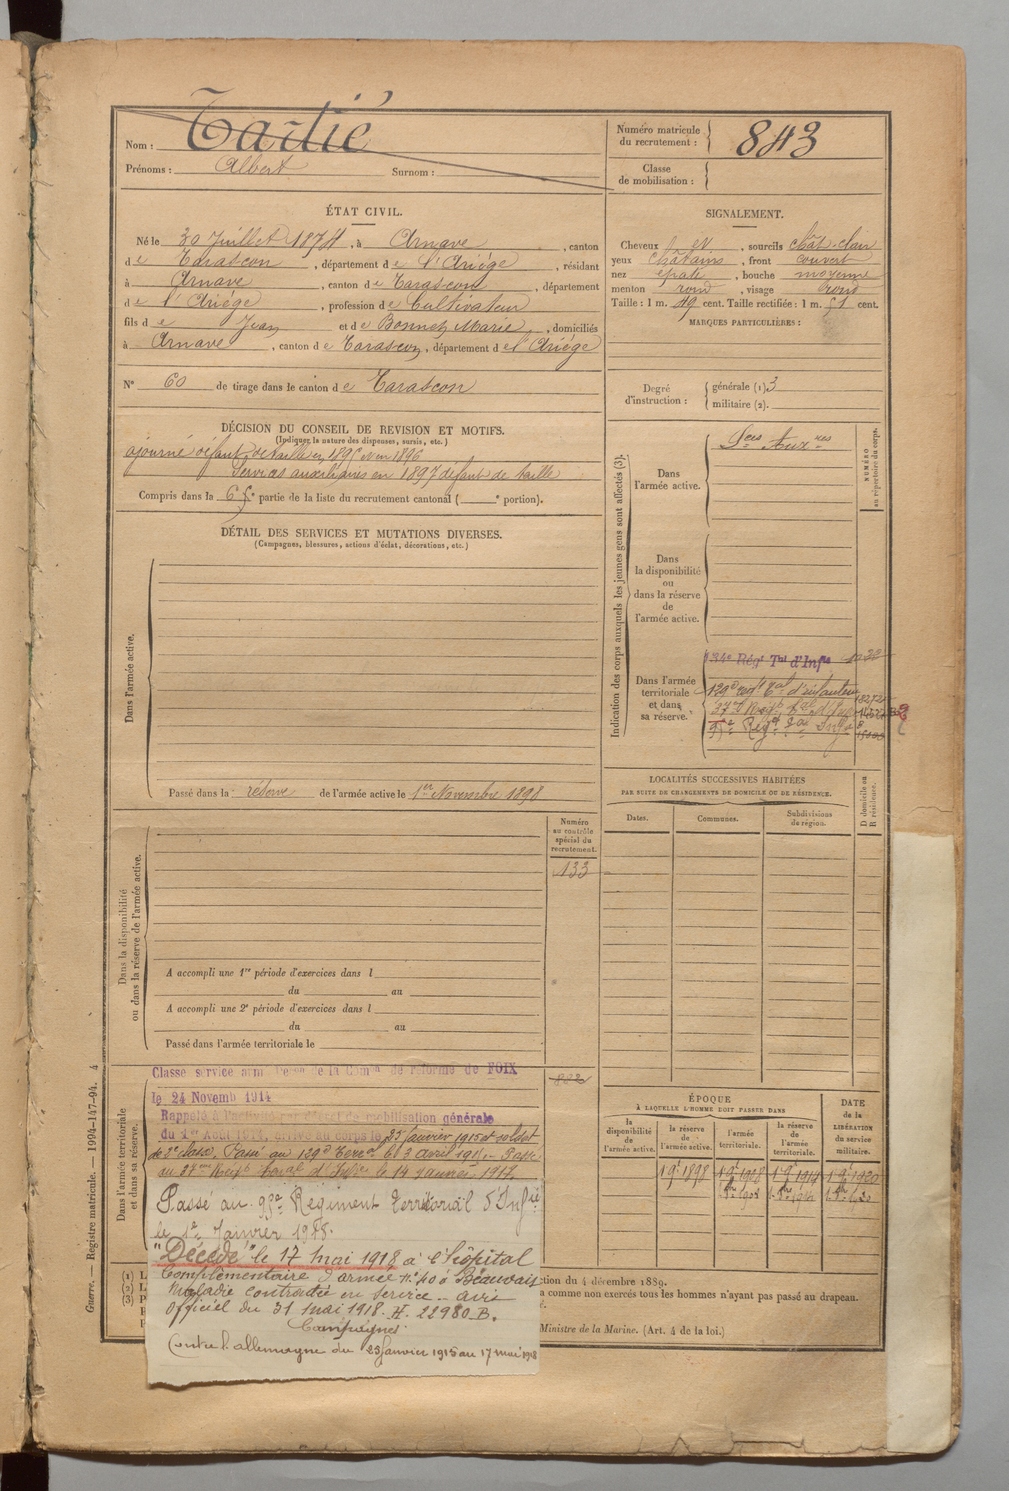 Nom : Tartié
Prénoms : Albert Surnom :
Numéro matricule
du recrutement : 843
Classe
de mobilisation :
ÉTAT CIVIL.
Né le 30 Juillet 1874, à Arnave, canton
de Tarascon, département de l'Ariège, résidant
à Arnave, canton de Tarascon, département
de l'Ariège, profession de Cultivateur
fils de Jean et de Bonnet Marie, domiciliés
à Arnave, canton de Tarascon, département de l'Ariège
N° 60 de tirage dans le canton de Tarascon
SIGNALEMENT.
Cheveux et, sourcils chât-clair
yeux châtains, front couvert
nez épaté, bouche moyenne
menton rond, visage rond
Taille : 1 m. 49 cent. Taille rectifiée : 1 m. 51 cent.
MARQUES PARTICULIÈRES :
Degré
d'instruction :
générale (1) 3
militaire (2).
DÉCISION DU CONSEIL DE REVISION ET MOTIFS.
(Indiquer la nature des dispenses, sursis, etc.)
ajourné défaut de taille en 1895 et en 1896
Services auxiliaires en 1897 défaut de taille
Compris dans la 6e partie de la liste du recrutement cantonal ( e portion).
DÉTAIL DES SERVICES ET MUTATIONS DIVERSES.
(Campagnes, blessures, actions d'éclat, décorations, etc.)
Dans l'armée active.
Passé dans la réserve de l'armée active le 1er Novembre 1898
Indication des corps auxquels les jeunes gens sont affectés (3).
NUMÉRO
au répertoire du corps.
Dans
l'armée active.
Sces Auxres
Dans
la disponibilité
ou
dans la réserve
de
l'armée active.
Dans l'armée
territoriale
et dans
sa réserve.
134e Régt Tial d'Infie
129e regt Tal d'infanterie
37e
99e Regt
LOCALITÉS SUCCESSIVES HABITÉES
PAR SUITE DE CHANGEMENTS DE DOMICILE OU DE RÉSIDENCE.
Dates. Communes. Subdivisions
de région.
D domicile ou
R résidence.
Numéro
au contrôle
spécial du
recrutement.
133
Dans la disponibilité
ou dans la réserve de l'armée active.
A accompli une 1re période d'exercices dans l
du au
A accompli une 2e période d'exercices dans l
du au
Passé dans l'armée territoriale le
Dans l'armée territoriale
et dans sa réserve.
Classe service arm de la Comon de réforme de FOIX
le 24 Novemb 1914
882
Rappelé à l'activité par décret de mobilisation générale
du 1er Août 1914, arrivé au corps le 25 janvier 1915 et soldat
de 2e classe. Passé au 129e Terral le 3 avril 1915. Passé
au 37me Regt Terral d'Infie le 14 janvier 1917.
Passé au 99e Regiment Territorial d'Infie
le 1er Janvier 1918.
"Décédé" le 17 mai 1918 à l'hôpital
Complémentaire d'armée N° 40 à Beauvais
Maladie contractée en service - avis
Officiel du 31 mai 1918. H. 22980 B.
Campagnes
Contre l'allemagne du 25 janvier 1915 au 17 mai 1918
ÉPOQUE
À LAQUELLE L'HOMME DOIT PASSER DANS
la
disponibilité
de
l'armée active.
la réserve
de
l'armée active.
l'armée
territoriale.
la réserve
de
l'armée
territoriale.
DATE
de la
LIBÉRATION
du service
militaire.
1 9bre 1898 1 9bre 1908 1 9bre 1914 1 9bre 1920
ction du 4 décembre 1889.
a comme non exercés tous les hommes n'ayant pas passé au drapeau.
Ministre de la Marine. (Art. 4 de la loi.)
Guerre. — Registre matricule. — 1994-147-94. 4